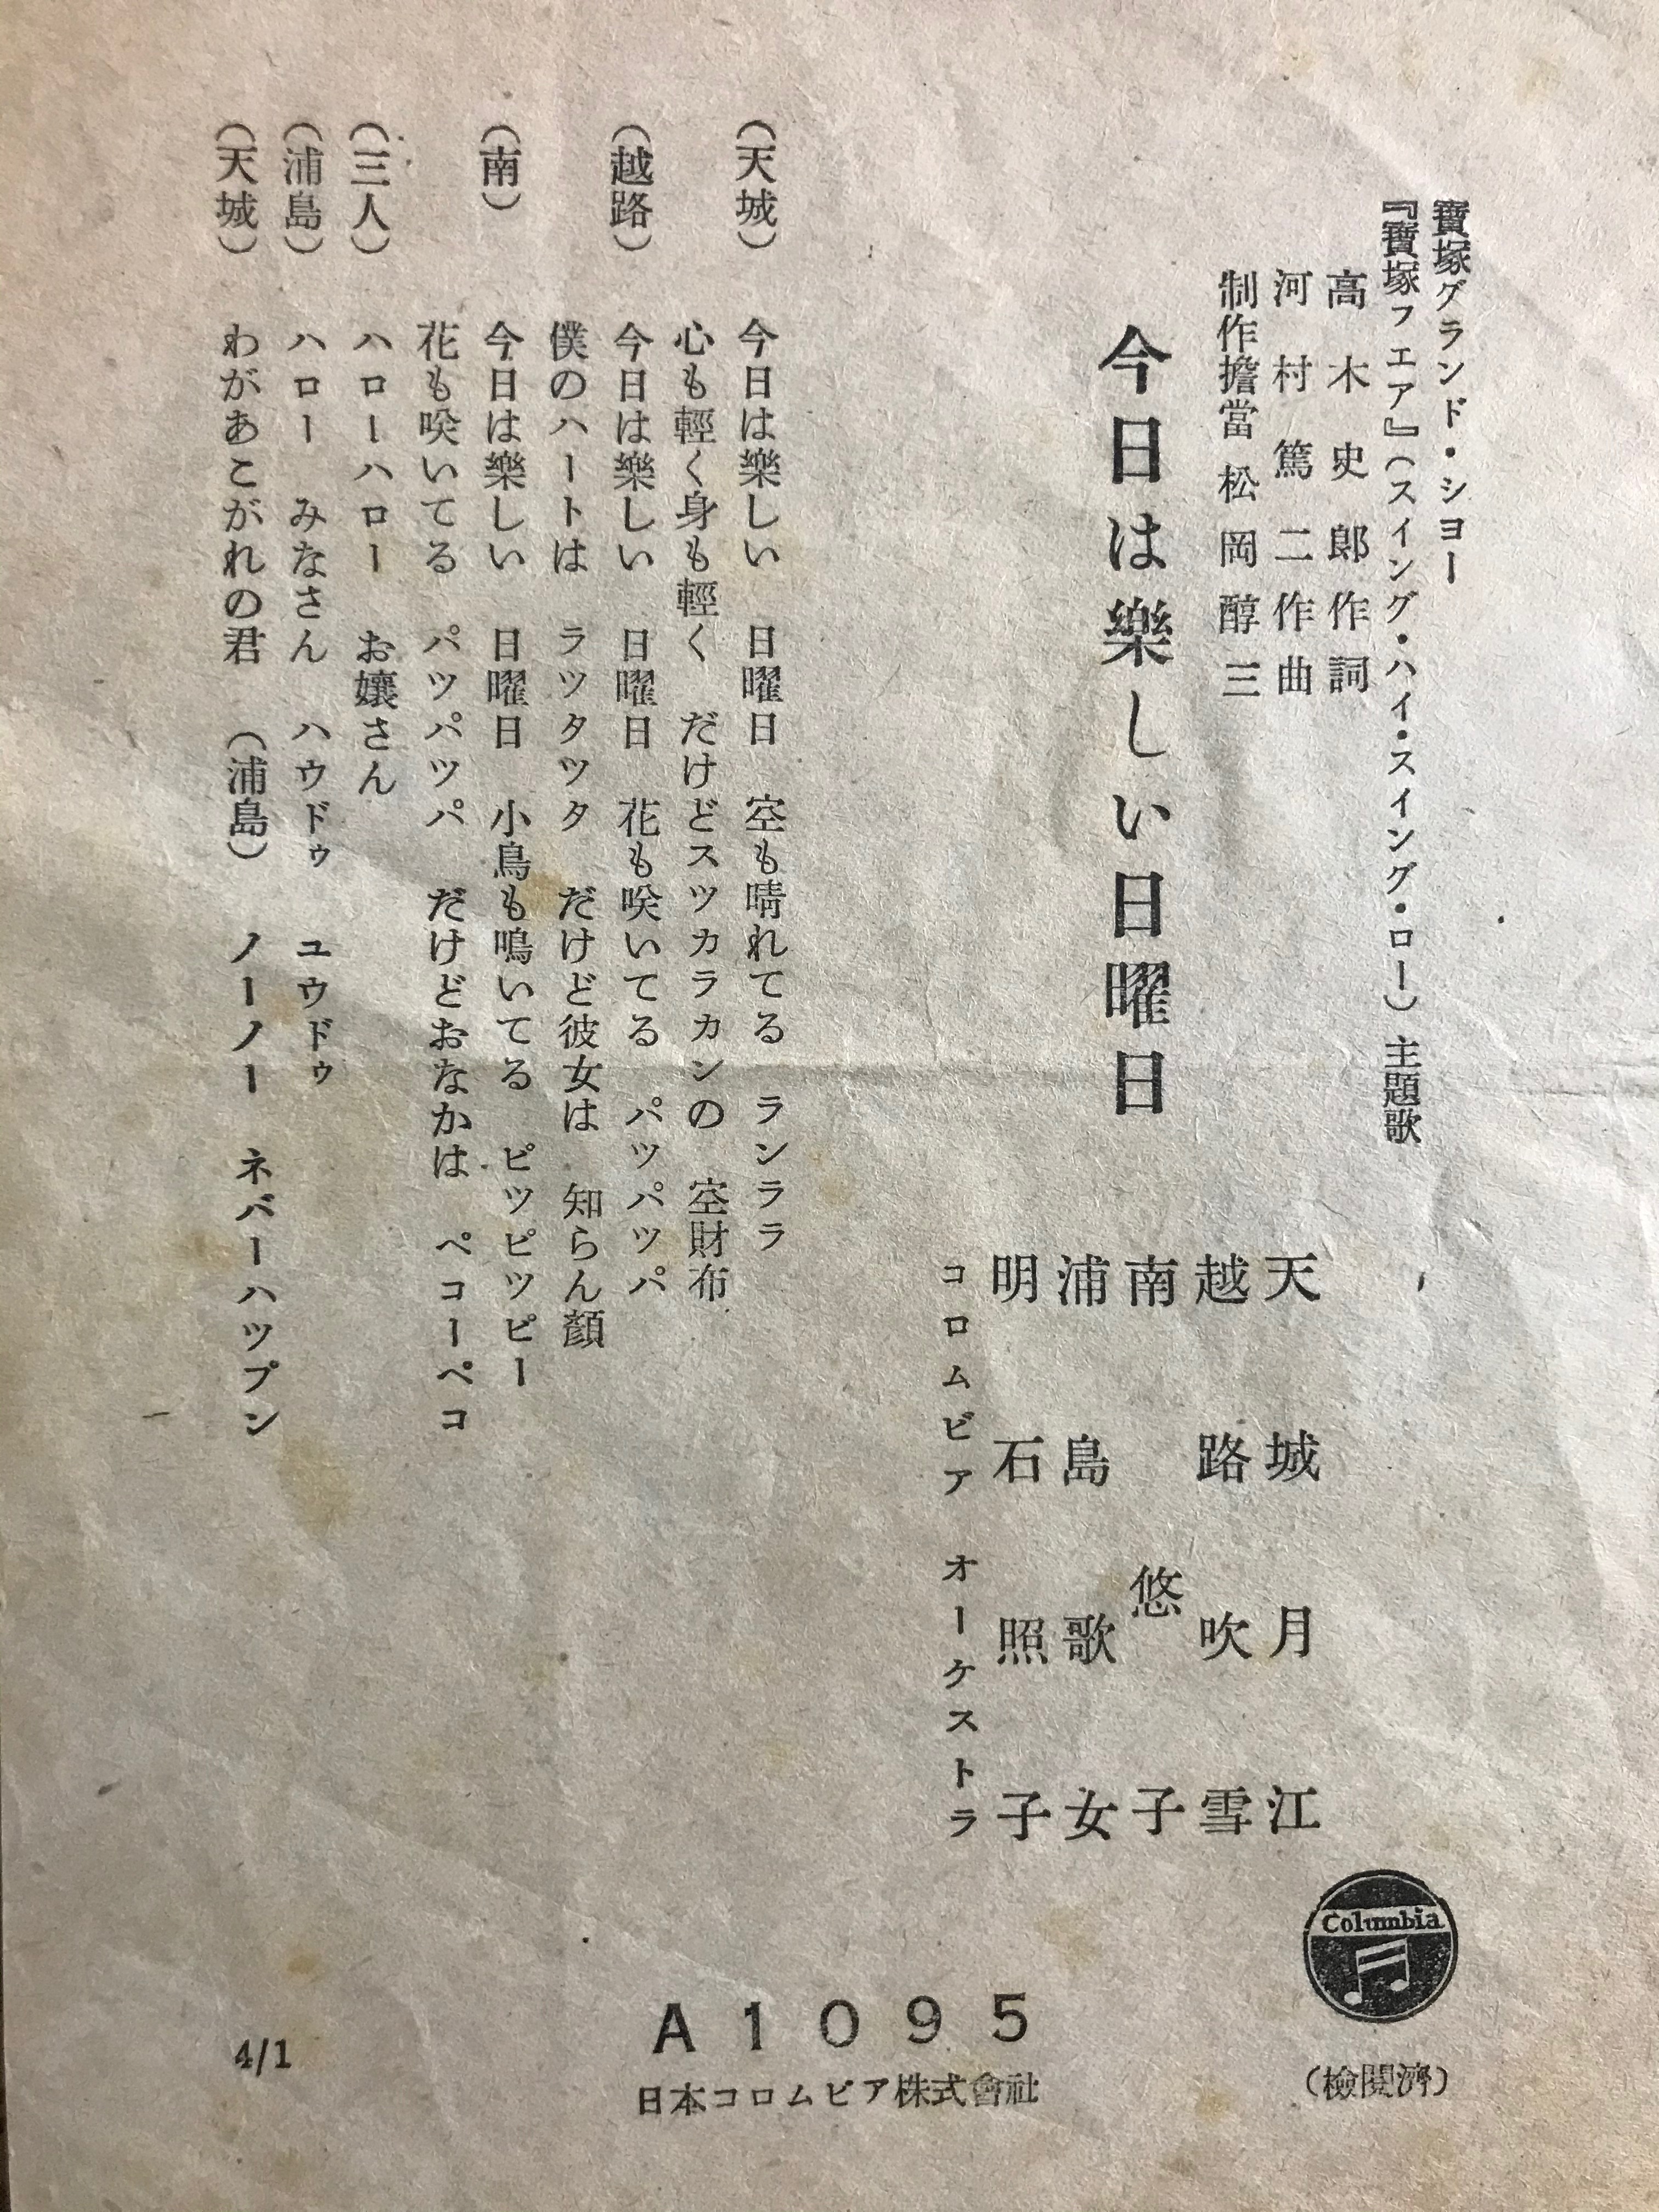 寶塚グランド・シヨー
『寶塚フエア』(スイング・ハイ・スイング・ロー)主題歌
高木史郎作詞
河村篤二作曲
制作擔當 松岡醇三
今日は樂しい日曜日
天城月江
越路吹雪
南悠子
浦島歌女
明石照子
コロムビア オーケストラ
(天城) 今日は樂しい 日曜日 空も晴れてる ランララ
心も輕く身も輕く だけどスツカラカンの 空財布
(越路) 今日は樂しい 日曜日 花も咲いてる パツパツパ
僕のハートは ラツタツタ だけど彼女は 知らん顏
(南) 今日は樂しい 日曜日 小鳥も鳴いてる ピツピツピー
花も咲いてる パツパツパ だけどおなかは ペコーペコ
(三人) ハローハロー お孃さん
(浦島) ハロー みなさん ハウドゥ ユウドゥ
(天城) わがあこがれの君 (浦島) ノーノー ネバーハツプン
Columbia
(檢閲濟)
A1095
日本コロムビア株式會社
4/1